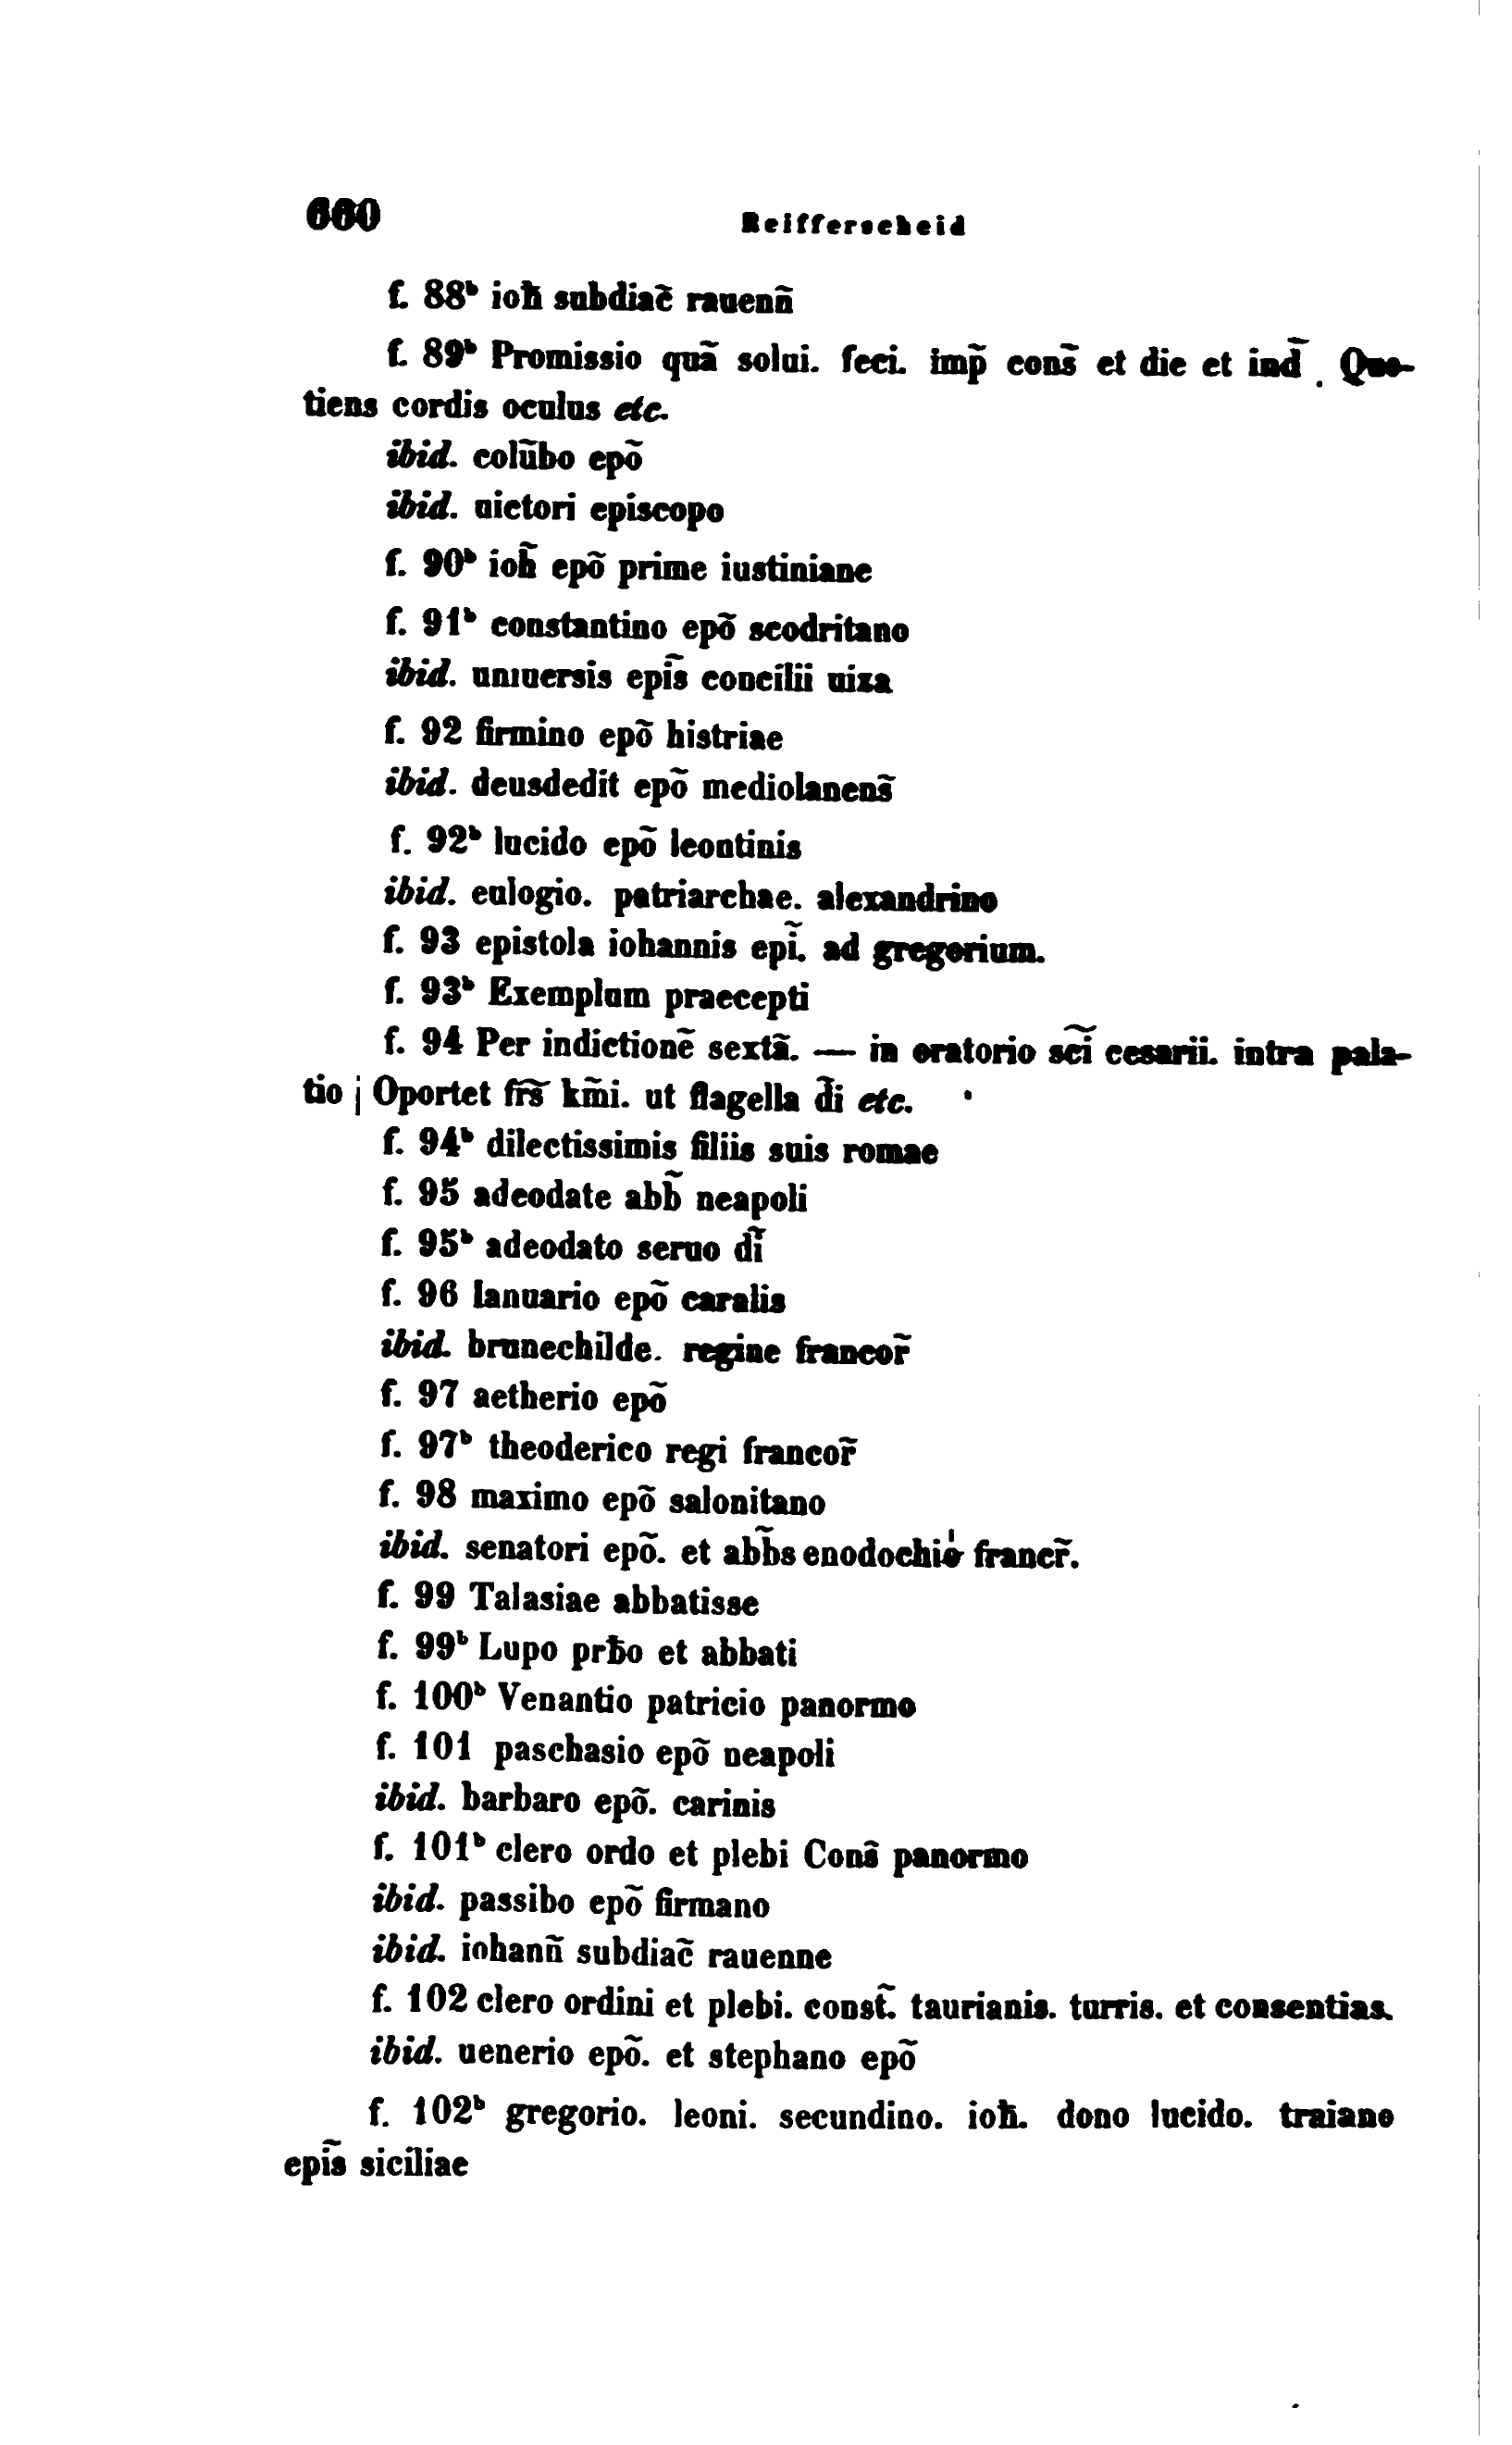 660 Reifferscheid
f. 88ᵇ ioħ subdiac̃ rauenñ
f. 89ᵇ Promissio quã solui. feci. imp̃ cons̃ et die et ind̃. Quo-
tiens cordis oculus etc.
ibid. colũbo epõ
ibid. uictori episcopo
f. 90ᵇ ioh̃ epõ prime iustiniane
f. 91ᵇ constantino epõ scodritano
ibid. uniuersis epĩs concilii uiza
f. 92 firmino epõ histriae
ibid. deusdedit epõ mediolanens̃
f. 92ᵇ lucido epõ leontinis
ibid. eulogio. patriarchae. alexandrino
f. 93 epistola iohannis epĩ. ad gregorium.
f. 93ᵇ Exemplum praecepti
f. 94 Per indictionẽ sextã. — in oratorio scĩ cesarii. intra pala-
tio | Oportet fr̃s km̃i. ut flagella d̃i etc.
f. 94ᵇ dilectissimis filiis suis romae
f. 95 adeodate abb̃ neapoli
f. 95ᵇ adeodato seruo dĩ
f. 96 Ianuario epõ caralis
ibid. brunechilde. regine francor̃
f. 97 aetherio epõ
f. 97ᵇ theoderico regi francor̃
f. 98 maximo epõ salonitano
ibid. senatori epõ. et abb̃s francr̃.
f. 99 Talasiae abbatisse
f. 99ᵇ Lupo prƀo et abbati
f. 100ᵇ Venantio patricio panormo
f. 101 paschasio epõ neapoli
ibid. barbaro epõ. carinis
f. 101ᵇ clero ordo et plebi Cons̃ panormo
ibid. passibo epõ firmano
ibid. iohanñ subdiac̃ rauenne
f. 102 clero ordini et plebi. const̃. taurianis. turris. et consentias.
ibid. uenerio epõ. et stephano epõ
f. 102ᵇ gregorio. leoni. secundino. ioħ. dono lucido. traiano
epĩs siciliae